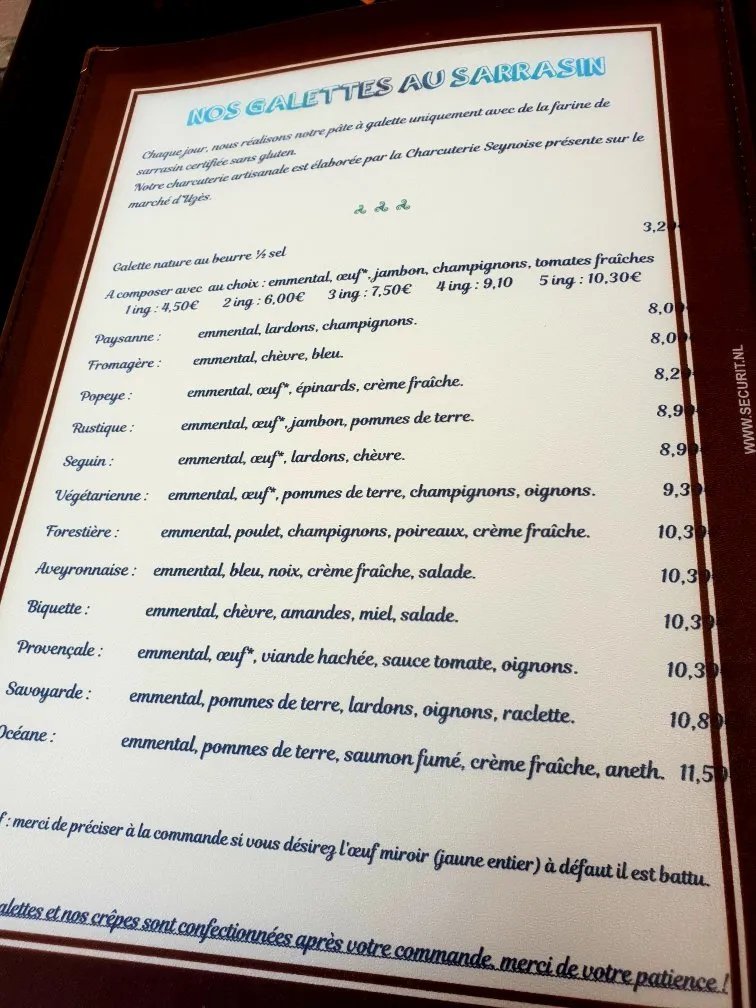 NOS GALETTES AU SARRASIN
Chaque jour, nous réalisons notre pâte à galette uniquement avec de la farine de
sarrasin certifiée sans gluten.
Notre charcuterie artisanale est élaborée par la Charcuterie Seynoise présente sur le
marché d'Uzès.
Galette nature au beurre ½ sel 3,20
A composer avec au choix : emmental, œuf*, jambon, champignons, tomates fraîches
1 ing : 4,50€ 2 ing : 6,00€ 3 ing : 7,50€ 4 ing : 9,10 5 ing : 10,30€
Paysanne : emmental, lardons, champignons. 8,00
Fromagère : emmental, chèvre, bleu. 8,00
Popeye : emmental, œuf*, épinards, crème fraîche. 8,20
Rustique : emmental, œuf*, jambon, pommes de terre. 8,90
Seguin : emmental, œuf*, lardons, chèvre. 8,90
Végétarienne : emmental, œuf*, pommes de terre, champignons, oignons. 9,30
Forestière : emmental, poulet, champignons, poireaux, crème fraîche. 10,30
Aveyronnaise : emmental, bleu, noix, crème fraîche, salade. 10,30
Biquette : emmental, chèvre, amandes, miel, salade. 10,30
Provençale : emmental, œuf*, viande hachée, sauce tomate, oignons. 10,30
Savoyarde : emmental, pommes de terre, lardons, oignons, raclette. 10,80
Océane : emmental, pommes de terre, saumon fumé, crème fraîche, aneth. 11,50
f : merci de préciser à la commande si vous désirez l'œuf miroir (jaune entier) à défaut il est battu.
alettes et nos crêpes sont confectionnées après votre commande, merci de votre patience !
WWW.SECURIT.NL